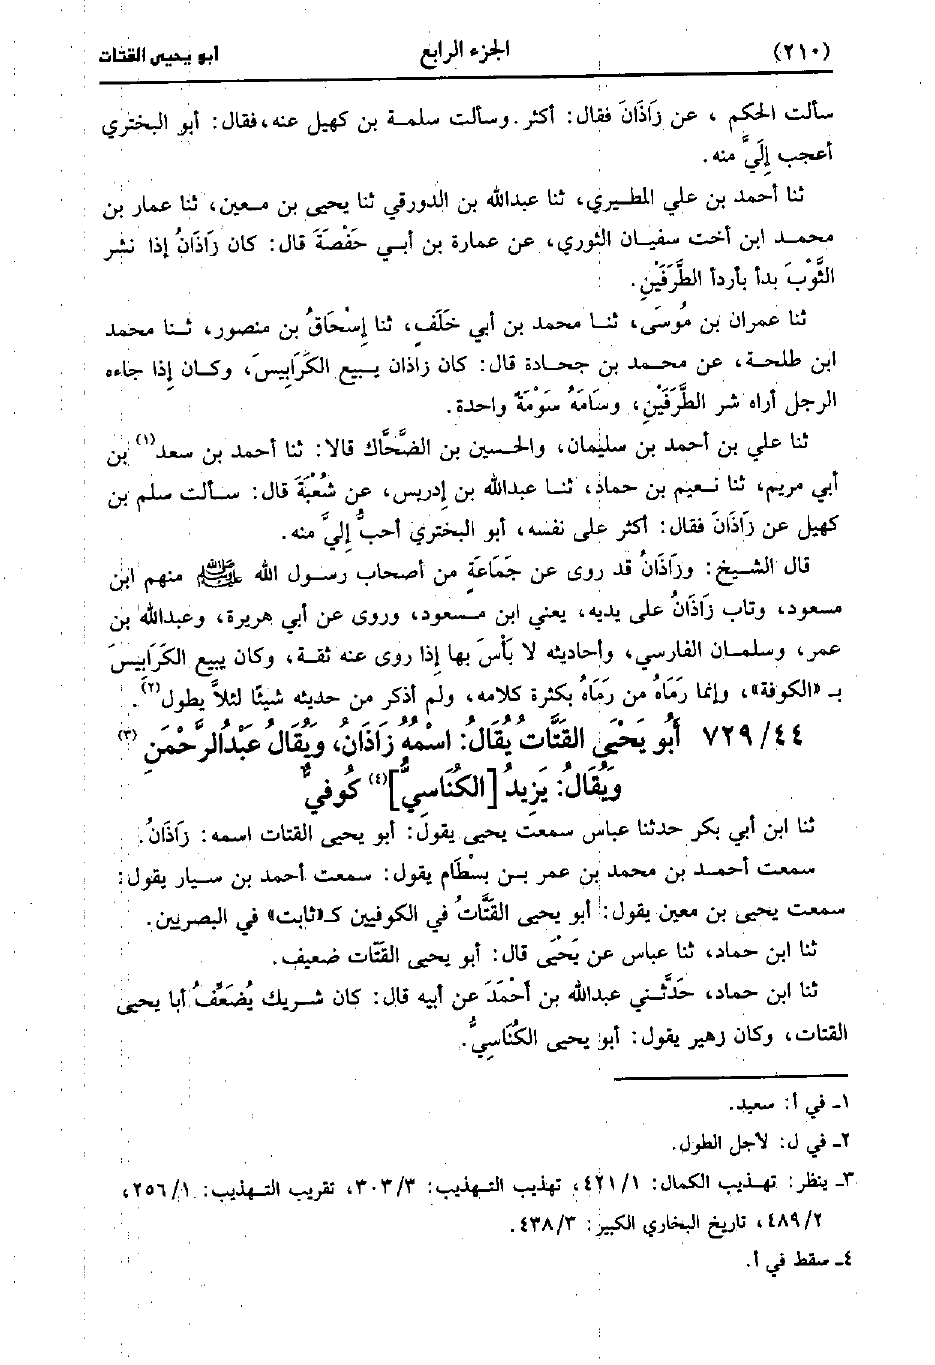 (٢١٠) الجزء الرابع أبو يحيى القتات
سألت الحكم ، عن زَاذَانَ فقال: أكثر. وسألت سلمة بن كهيل عنه، فقال: أبو البختري
أعجب إِلَيَّ منه.
ثنا أحمد بن علي المطيري، ثنا عبدالله بن الدورقي ثنا يحيى بن معين، ثنا عمار بن
محمد ابن أخت سفيان الثوري، عن عمارة بن أبي حَفْصَةَ قال: كان زَاذَانُ إذا نشر
الثَّوْبَ بدأ بأردأ الطَّرَفَيْنِ.
ثنا عمران بن مُوسَى، ثنا محمد بن أبي خَلَفٍ، ثنا إِسْحَاقُ بن منصور، ثنا محمد
ابن طلحة، عن محمد بن جحادة قال: كان زاذان يبيع الكَرَابِيسَ، وكان إذا جاءه
الرجل أراه شر الطَّرَفَيْنِ، وسَامَهُ سَوْمَةً واحدة.
ثنا علي بن أحمد بن سليمان، والحسين بن الضَّحَّاك قالا: ثنا أحمد بن سعد(١) بن
أبي مريم، ثنا نعيم بن حماد، ثنا عبدالله بن إدريس، عن شُعْبَةَ قال: سألت سلم بن
كهيل عن زَاذَانَ فقال: أكثر على نفسه، أبو البختري أحبُّ إِليَّ منه.
قال الشيخ: وزَاذَانُ قد روى عن جَمَاعَةٍ من أصحاب رسول الله ﷺ منهم ابن
مسعود، وتاب زَاذَانُ على يديه، يعني ابن مسعود، وروى عن أبي هريرة، وعبدالله بن
عمر، وسلمان الفارسي، وأحاديثه لا بَأْسَ بها إذا روى عنه ثقة، وكان يبيع الكَرَابِيسَ
بـ «الكوفة»، وإنما رَمَاهُ من رَمَاهُ بكثرة كلامه، ولم أذكر من حديثه شيئًا لئلاَّ يطول(٢).
٧٢٩/٤٤ أَبُو يَحْيَى القَتَّات يُقَالُ: اسْمُهُ زَاذَانُ، ويُقَالُ عَبْدُالرَّحْمَنِ(٣)
ويُقَالُ: يَزِيدُ [الكُنَاسِيُّ](٤) كُوفِيٌّ
ثنا ابن أبي بكر حدثنا عباس سمعت يحيى يقول: أبو يحيى القتات اسمه: زَاذَانُ.
سمعت أحمد بن محمد بن عمر بن بِسْطَام يقول: سمعت أحمد بن سيار يقول:
سمعت يحيى بن معين يقول: أبو يحيى القَتَّاتُ في الكوفيين كـ«ثابت» في البصريين.
ثنا ابن حماد، ثنا عباس عن يَحْيَى قال: أبو يحيى القَتَّات ضعيف.
ثنا ابن حماد، حَدَّثني عبدالله بن أَحْمَدَ عن أبيه قال: كان شريك يُضَعِّفُ أبا يحيى
القتات، وكان زهير يقول: أبو يحيى الكُنَاسِيُّ.
١ـ في أ: سعيد.
٢ـ في ل: لأجل الطول.
٣ـ ينظر: تهذيب الكمال: ٤٢١/١، تهذيب التهذيب: ٣٠٣/٣، تقريب التهذيب: ٢٥٦/١،
٤٨٩/٢، تاريخ البخاري الكبير: ٤٣٨/٣.
٤ـ سقط في أ.